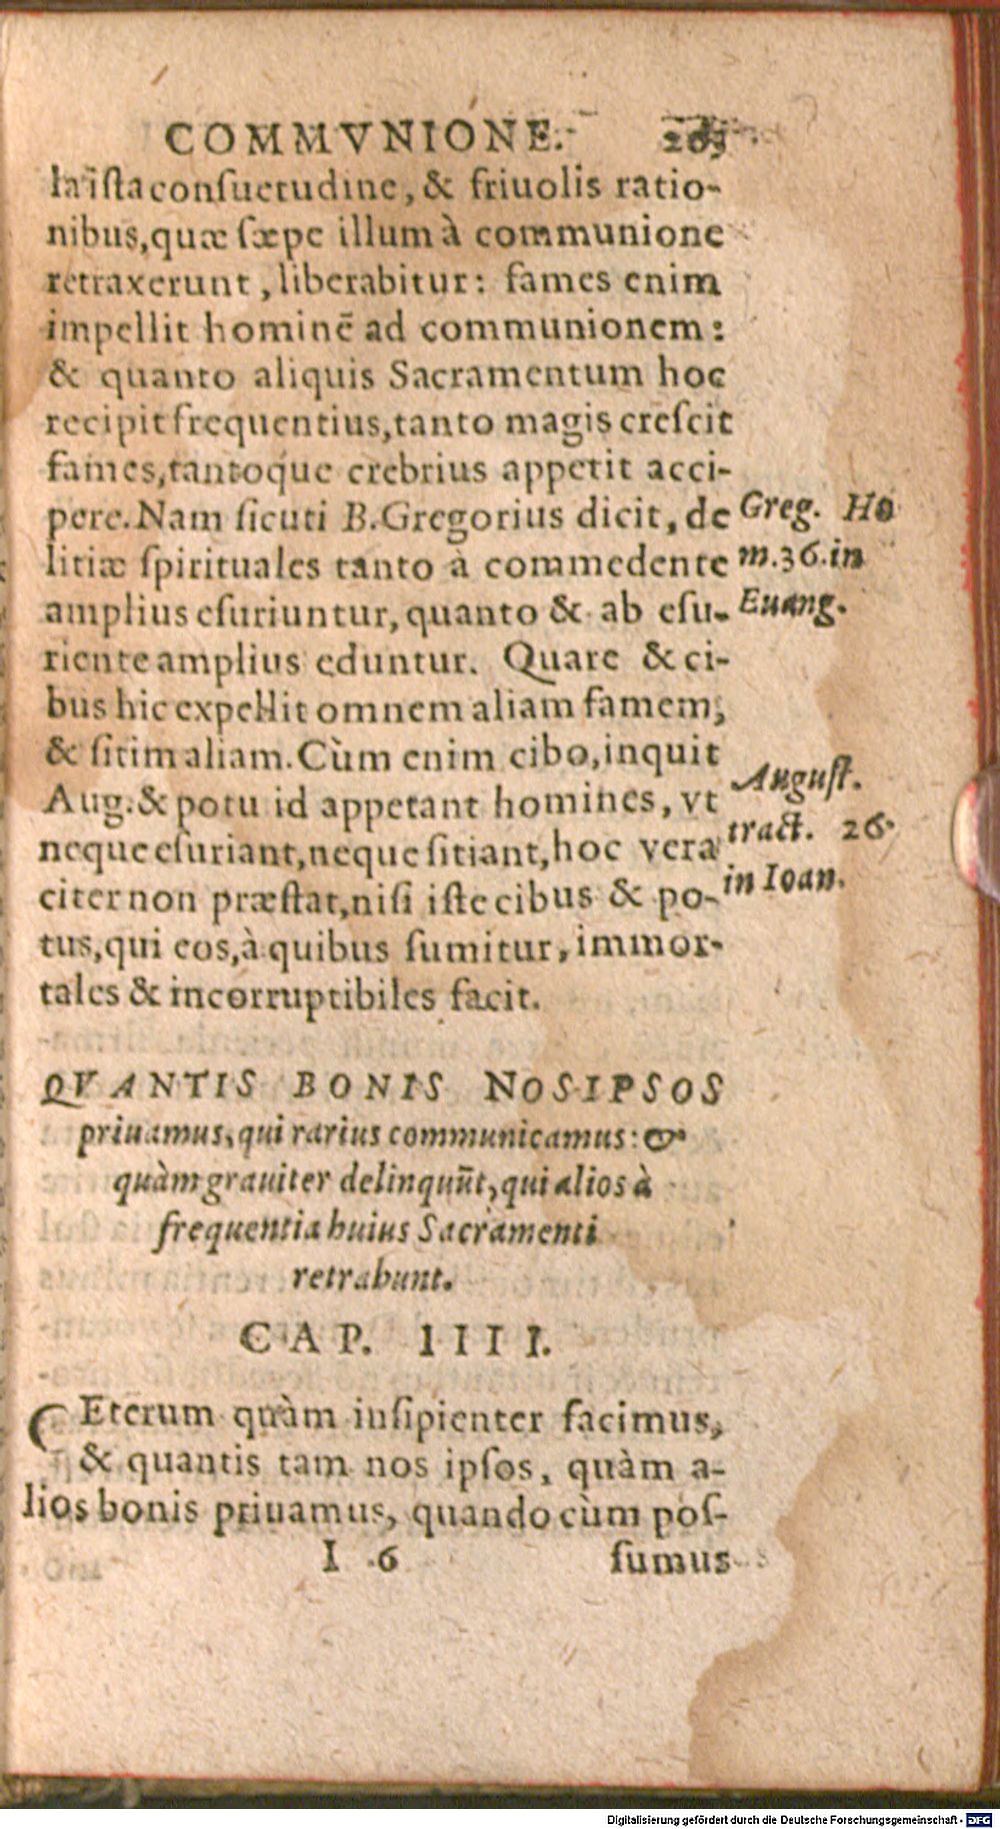 COMMVNIONE.
la ista consuetudine, & friuolis ratio-
nibus, quæ sæpe illum à communione
retraxerunt, liberabitur: fames enim
impellit hominē ad communionem:
& quanto aliquis Sacramentum hoc
recipit frequentius, tanto magis crescit
fames, tantoque crebrius appetit acci-
pere. Nam sicuti B. Gregorius dicit, de
litiæ spirituales tanto à commedente
amplius esuriuntur, quanto & ab esu-
riente amplius eduntur. Quare & ci-
bus hic expellit omnem aliam famem,
& sitim aliam. Cùm enim cibo, inquit
Aug. & potu id appetant homines, vt
neque esuriant, neque sitiant, hoc vera
citer non præstat, nisi iste cibus & po-
tus, qui eos, à quibus sumitur, immor-
tales & incorruptibiles facit.
Greg. Ho
m. 36. in
Euang.
August.
tract. 26.
in Ioan.
QVANTIS BONIS NOSIPSOS
priuamus, qui rarius communicamus: &
quàm grauiter delinquūt, qui alios à
frequentia huius Sacramenti
retrahunt.
CAP. IIII.
CEterum quàm insipienter facimus,
& quantis tam nos ipsos, quàm a-
lios bonis priuamus, quando cùm pos-
I 6 sumus
Digitalisierung gefördert durch die Deutsche Forschungsgemeinschaft - DFG